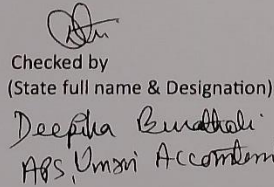 Checked by
(State full name & Designation)
Deepika
APS, Umroi Accountant